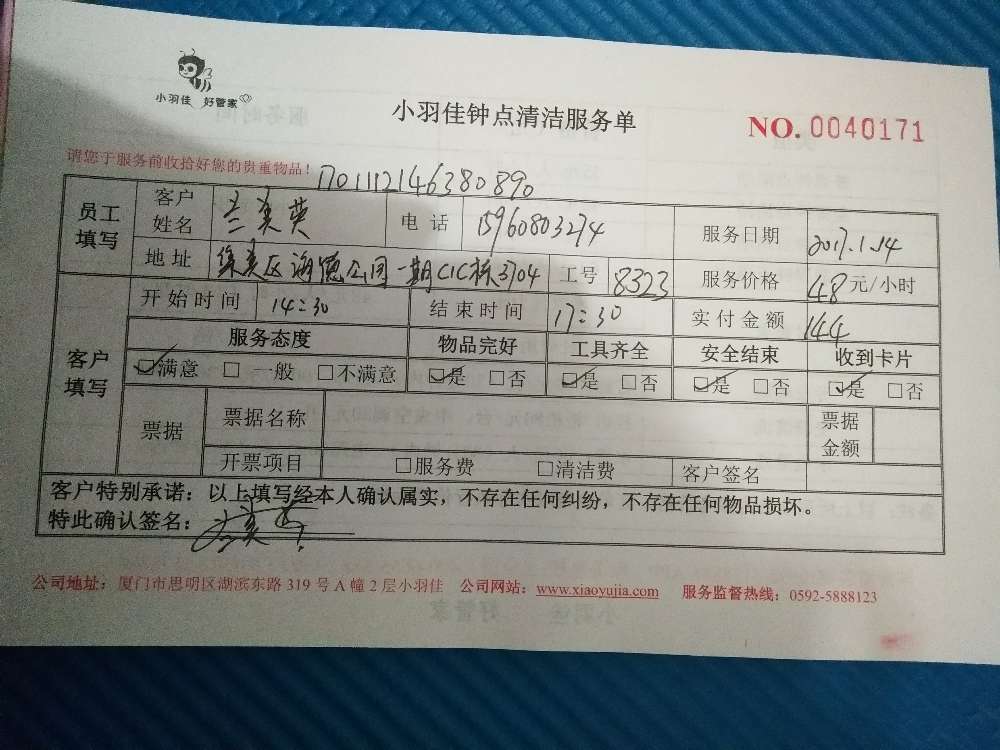 小羽佳 好管家
小羽佳钟点清洁服务单
NO. 0040171
请您于服务前收拾好您的贵重物品！
1701112146380890
员工填写 客户姓名 兰美英 电话 15960803274 服务日期 2017.1.14
地址 集美区海德公园一期C1C栋3704 工号 8323 服务价格 48元/小时
客户填写 开始时间 14:30 结束时间 17:30 实付金额 144
服务态度 物品完好 工具齐全 安全结束 收到卡片
☑满意 □一般 □不满意 ☑是 □否 ☑是 □否 ☑是 □否 ☑是 □否
票据 票据名称 票据金额
开票项目 □服务费 □清洁费 客户签名
客户特别承诺：以上填写经本人确认属实，不存在任何纠纷，不存在任何物品损坏。
特此确认签名：兰美英
公司地址：厦门市思明区湖滨东路 319 号 A 幢 2 层小羽佳 公司网站：www.xiaoyujia.com 服务监督热线：0592-5888123